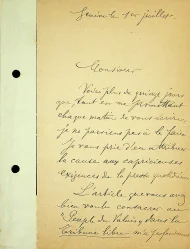 Genève le 1er juillet
Monsieur
Voici plus de quinze jours
que, tout en me promettant
chaque matin de vous écrire,
je ne parviens pas à le faire.
Je vous prie d'en attribuer
la cause aux capricieuses
exigences de la presse quotidienne.
L'article que vous avez
bien voulu consacrer au
Peuple du Valais, dans la
Tribune libre m'a